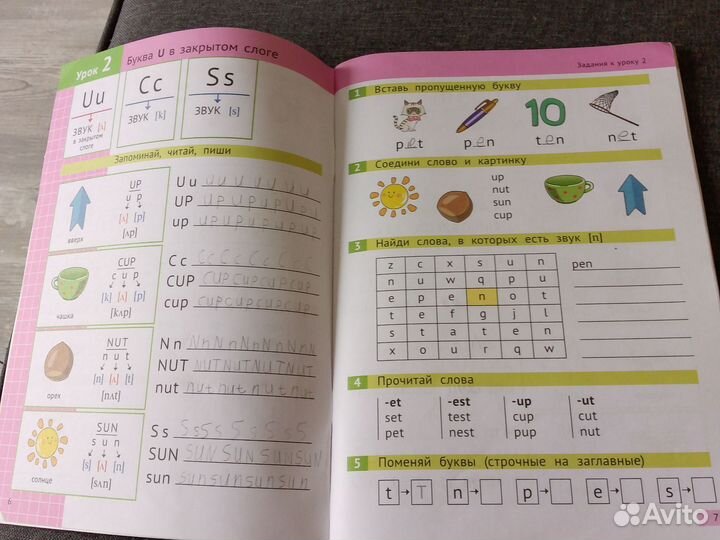 Урок 2
Буква U в закрытом слоге
Uu
ЗВУК [ʌ]
в закрытом
слоге
Cc
ЗВУК [k]
Ss
ЗВУК [s]
Запоминай, читай, пиши
UP
u p
[ʌ] [p]
[ʌp]
вверх
Uu U U U U U U U
UP UPUPUPUPUP
up up up up up up
CUP
c u p
[k] [ʌ] [p]
[kʌp]
чашка
Cc CcCcCcCcCc
CUP CUPCUPCUPCUP
cup cupcupcupcup
NUT
n u t
[n] [ʌ] [t]
[nʌt]
орех
Nn NnNnNnNnNnN
NUT NUTNUTNUTNUT
nut nut nut nut nut
SUN
s u n
[s] [ʌ] [n]
[sʌn]
солнце
Ss Ss5s 5s5s5s5
SUN SUN SUN SUN SUN
sun sun sun sun sun
6
Задания к уроку 2
1 Вставь пропущенную букву
pet pen ten net
10
2 Соедини слово и картинку
up
nut
sun
cup
3 Найди слова, в которых есть звук [n]
z c x s u n
n u w q p u
e p e n o t
t e f g j l
s t a t e n
x o u r q w
pen
4 Прочитай слова
-et -est -up -ut
set test cup cut
pet nest pup nut
5 Поменяй буквы (строчные на заглавные)
t → T n → p → e → s →
7
Avito